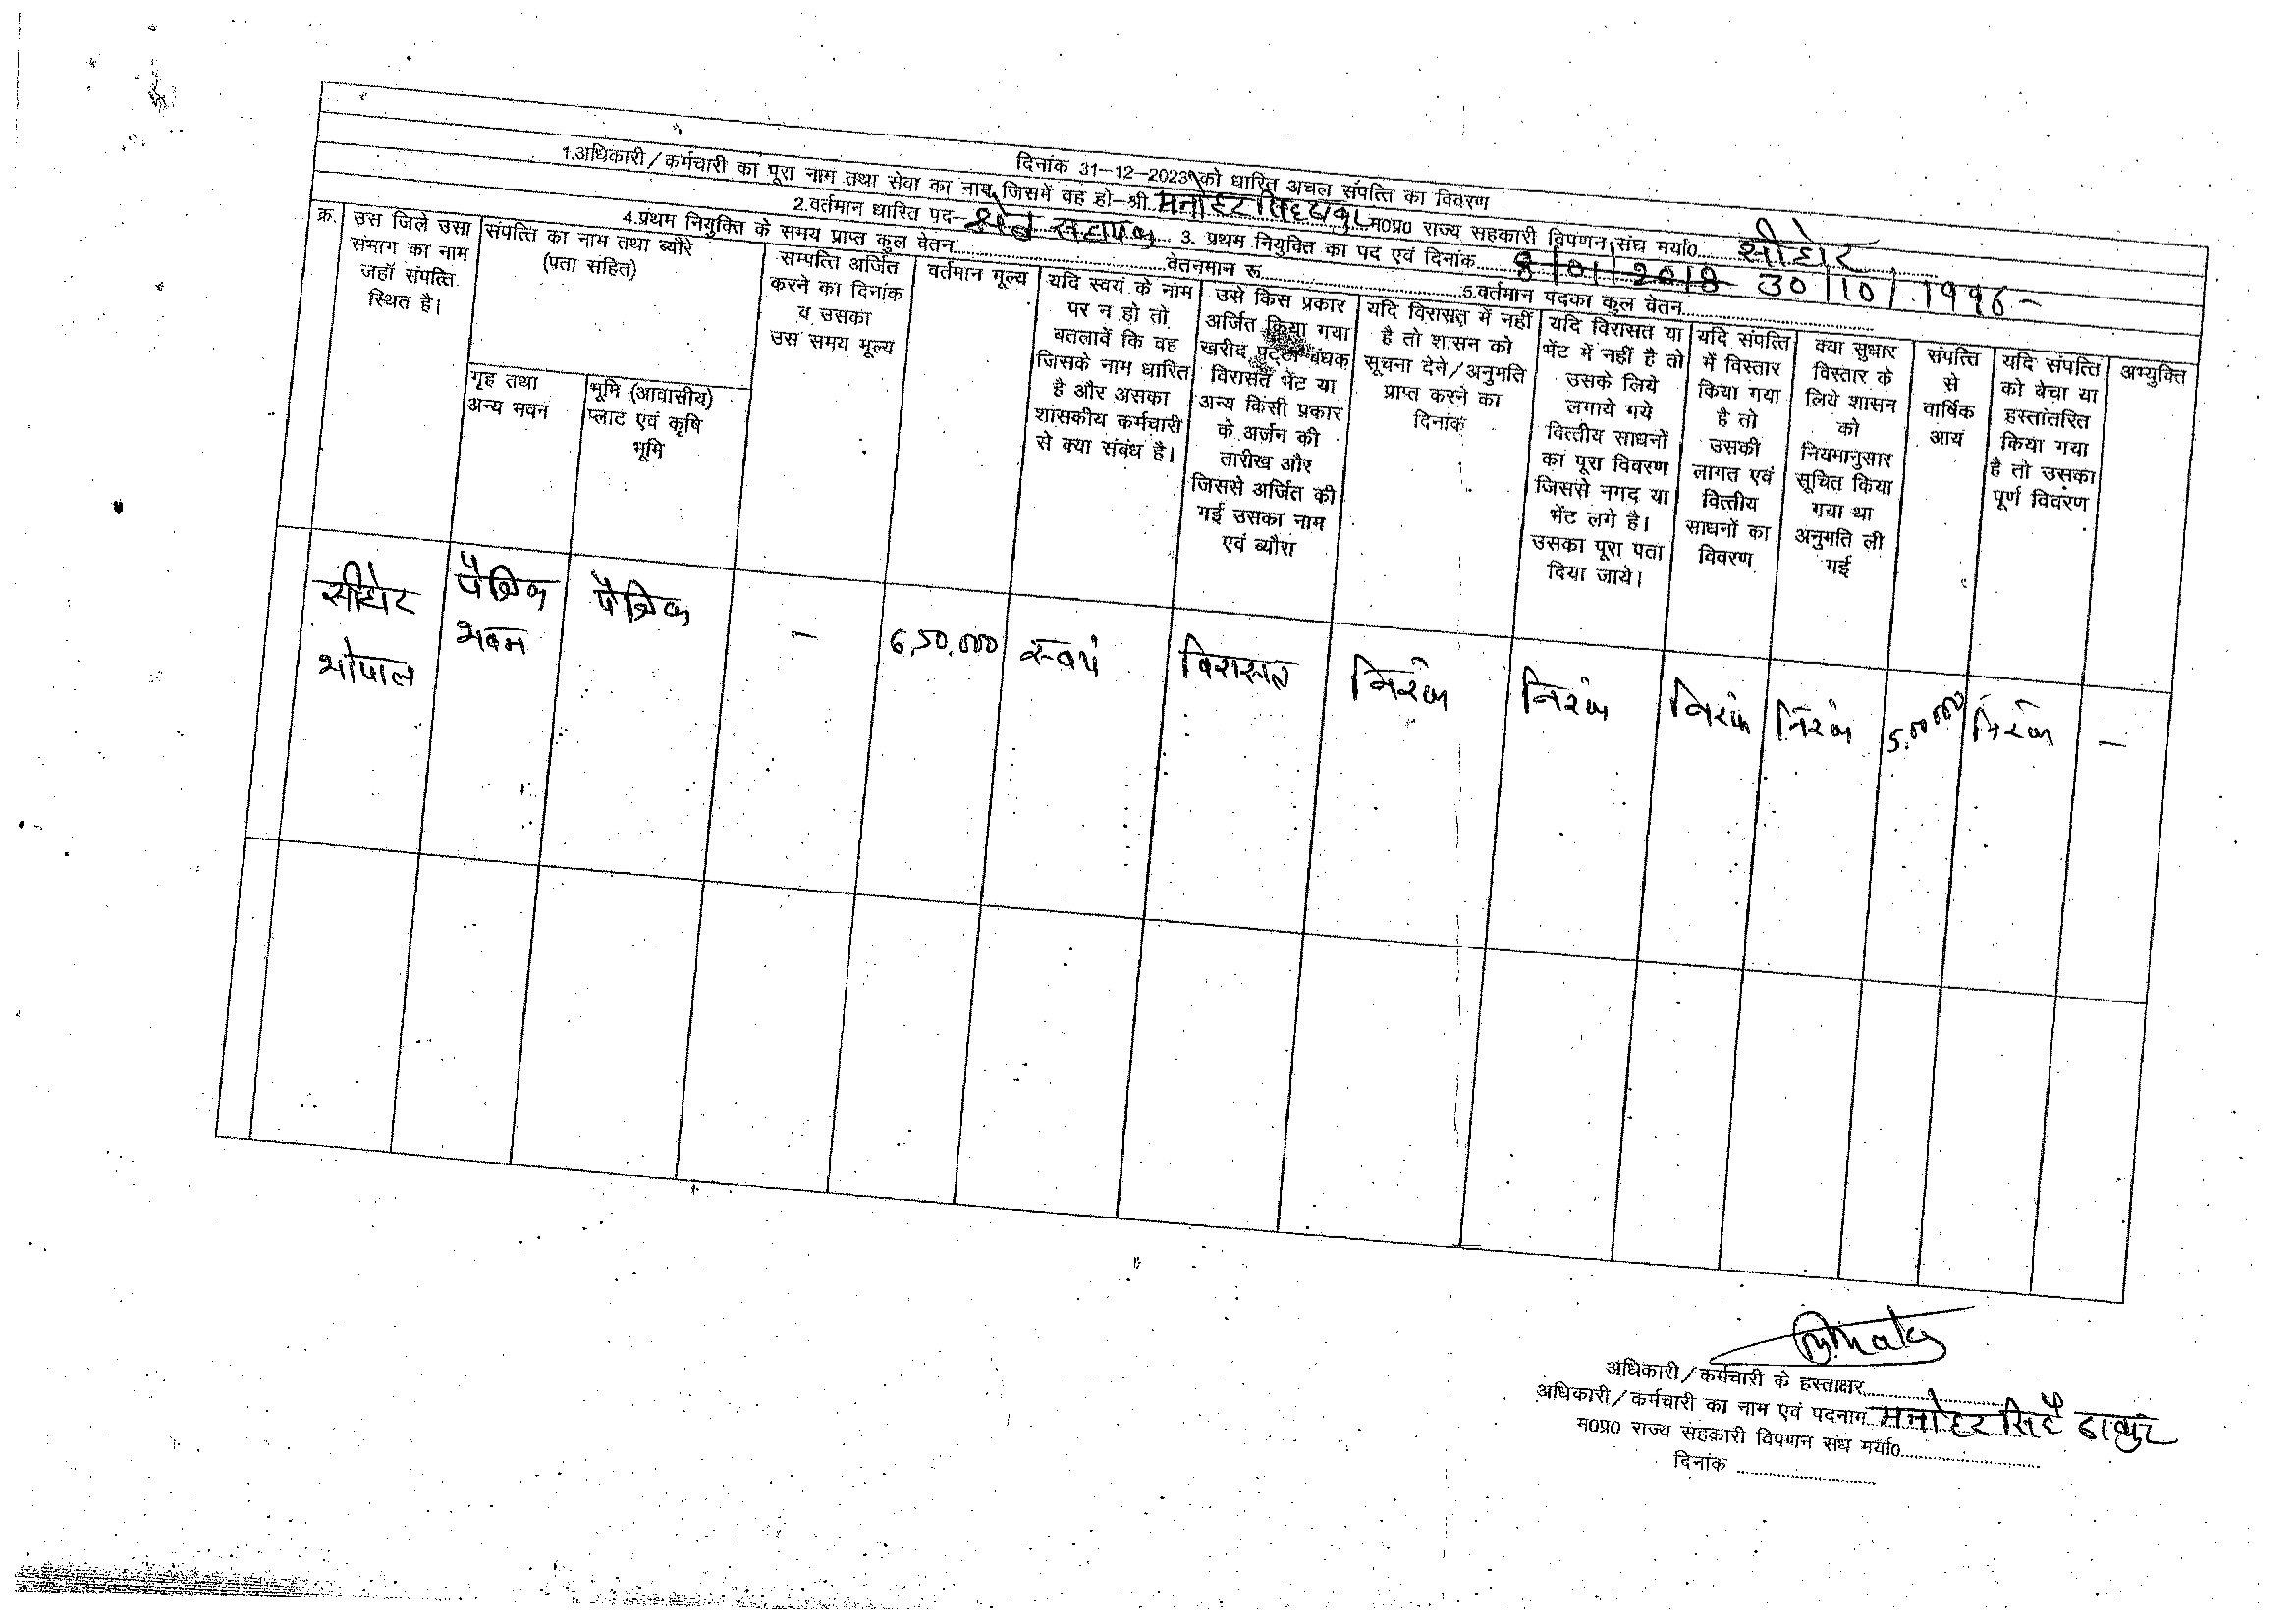 दिनांक 31-12-2023 को धारित अचल संपत्ति का विवरण
1.अधिकारी/कर्मचारी का पूरा नाम तथा सेवा का नाम जिसमें वह हो-श्री मनोहर सिंह ठाकुर म0प्र0 राज्य सहकारी विपणन संघ मर्या0 सीहोर
2.वर्तमान धारित पद- क्षेत्र सहायक 3. प्रथम नियुक्ति का पद एवं दिनांक 8/01/2018 30/10/1996-
4.प्रथम नियुक्ति के समय प्राप्त कुल वेतन वेतनमान रू 5.वर्तमान पदका कुल वेतन
क्र.
उस जिले उसा
संभाग का नाम
जहाँ संपत्ति
स्थित है।
संपत्ति का नाम तथा ब्यौरे
(पता सहित)
गृह तथा
अन्य भवन
भूमि (आवासीय)
प्लाट एवं कृषि
भूमि
सम्पत्ति अर्जित
करने का दिनांक
व उसका
उस समय मूल्य
वर्तमान मूल्य
यदि स्वयं के नाम
पर न हो तो
बतलावें कि वह
जिसके नाम धारित
है और असका
शासकीय कर्मचारी
से क्या संबंध है।
उसे किस प्रकार
अर्जित किया गया
खरीद पट्टा बंधक
विरासत भेंट या
अन्य किसी प्रकार
के अर्जन की
तारीख और
जिससे अर्जित की
गई उसका नाम
एवं ब्यौरा
यदि विरासत में नहीं
है तो शासन को
सूचना देने/अनुमति
प्राप्त करने का
दिनांक
यदि विरासत या
भेंट में नहीं है तो
उसके लिये
लगाये गये
वित्तीय साधनों
का पूरा विवरण
जिससे नगद या
भेंट लगे है।
उसका पूरा पता
दिया जाये।
यदि संपत्ति
में विस्तार
किया गया
है तो
उसकी
लागत एवं
वित्तीय
साधनों का
विवरण
क्या सुधार
विस्तार के
लिये शासन
को
नियमानुसार
सूचित किया
गया था
अनुमति ली
गई
संपत्ति
से
वार्षिक
आय
यदि संपत्ति
को बेचा या
हस्तांतरित
किया गया
है तो उसका
पूर्ण विवरण
अभ्युक्ति
सीहोर
भोपाल
पैत्रिक
भवन
पैत्रिक
-
6,50,000
स्वयं
विरासत
निरंक
निरंक
निरंक
निरंक
5,00,000
निरंक
-
अधिकारी/कर्मचारी के हस्ताक्षर
अधिकारी/कर्मचारी का नाम एवं पदनाम मनोहर सिंह ठाकुर
म0प्र0 राज्य सहकारी विपणन संघ मर्या0
दिनांक